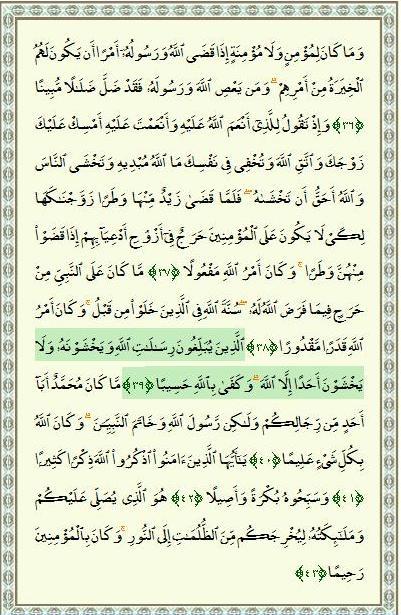 وَمَا كَانَ لِمُؤْمِنٍ وَلَا مُؤْمِنَةٍ إِذَا قَضَى ٱللَّهُ وَرَسُولُهُۥٓ أَمْرًا أَن يَكُونَ لَهُمُ
ٱلْخِيَرَةُ مِنْ أَمْرِهِمْ ۗ وَمَن يَعْصِ ٱللَّهَ وَرَسُولَهُۥ فَقَدْ ضَلَّ ضَلَـٰلًا مُّبِينًا
﴿٣٦﴾ وَإِذْ تَقُولُ لِلَّذِىٓ أَنْعَمَ ٱللَّهُ عَلَيْهِ وَأَنْعَمْتَ عَلَيْهِ أَمْسِكْ عَلَيْكَ
زَوْجَكَ وَٱتَّقِ ٱللَّهَ وَتُخْفِى فِى نَفْسِكَ مَا ٱللَّهُ مُبْدِيهِ وَتَخْشَى ٱلنَّاسَ
وَٱللَّهُ أَحَقُّ أَن تَخْشَىٰهُ ۖ فَلَمَّا قَضَىٰ زَيْدٌ مِّنْهَا وَطَرًا زَوَّجْنَـٰكَهَا
لِكَىْ لَا يَكُونَ عَلَى ٱلْمُؤْمِنِينَ حَرَجٌ فِىٓ أَزْوَٰجِ أَدْعِيَآئِهِمْ إِذَا قَضَوْا۟
مِنْهُنَّ وَطَرًا ۚ وَكَانَ أَمْرُ ٱللَّهِ مَفْعُولًا ﴿٣٧﴾ مَّا كَانَ عَلَى ٱلنَّبِىِّ مِنْ
حَرَجٍ فِيمَا فَرَضَ ٱللَّهُ لَهُۥ ۖ سُنَّةَ ٱللَّهِ فِى ٱلَّذِينَ خَلَوْا۟ مِن قَبْلُ ۚ وَكَانَ أَمْرُ
ٱللَّهِ قَدَرًا مَّقْدُورًا ﴿٣٨﴾ ٱلَّذِينَ يُبَلِّغُونَ رِسَـٰلَـٰتِ ٱللَّهِ وَيَخْشَوْنَهُۥ وَلَا
يَخْشَوْنَ أَحَدًا إِلَّا ٱللَّهَ ۗ وَكَفَىٰ بِٱللَّهِ حَسِيبًا ﴿٣٩﴾ مَّا كَانَ مُحَمَّدٌ أَبَآ
أَحَدٍ مِّن رِّجَالِكُمْ وَلَـٰكِن رَّسُولَ ٱللَّهِ وَخَاتَمَ ٱلنَّبِيِّـۧنَ ۗ وَكَانَ ٱللَّهُ
بِكُلِّ شَىْءٍ عَلِيمًا ﴿٤٠﴾ يَـٰٓأَيُّهَا ٱلَّذِينَ ءَامَنُوا۟ ٱذْكُرُوا۟ ٱللَّهَ ذِكْرًا كَثِيرًا
﴿٤١﴾ وَسَبِّحُوهُ بُكْرَةً وَأَصِيلًا ﴿٤٢﴾ هُوَ ٱلَّذِى يُصَلِّى عَلَيْكُمْ
وَمَلَـٰٓئِكَتُهُۥ لِيُخْرِجَكُم مِّنَ ٱلظُّلُمَـٰتِ إِلَى ٱلنُّورِ ۚ وَكَانَ بِٱلْمُؤْمِنِينَ
رَحِيمًا ﴿٤٣﴾